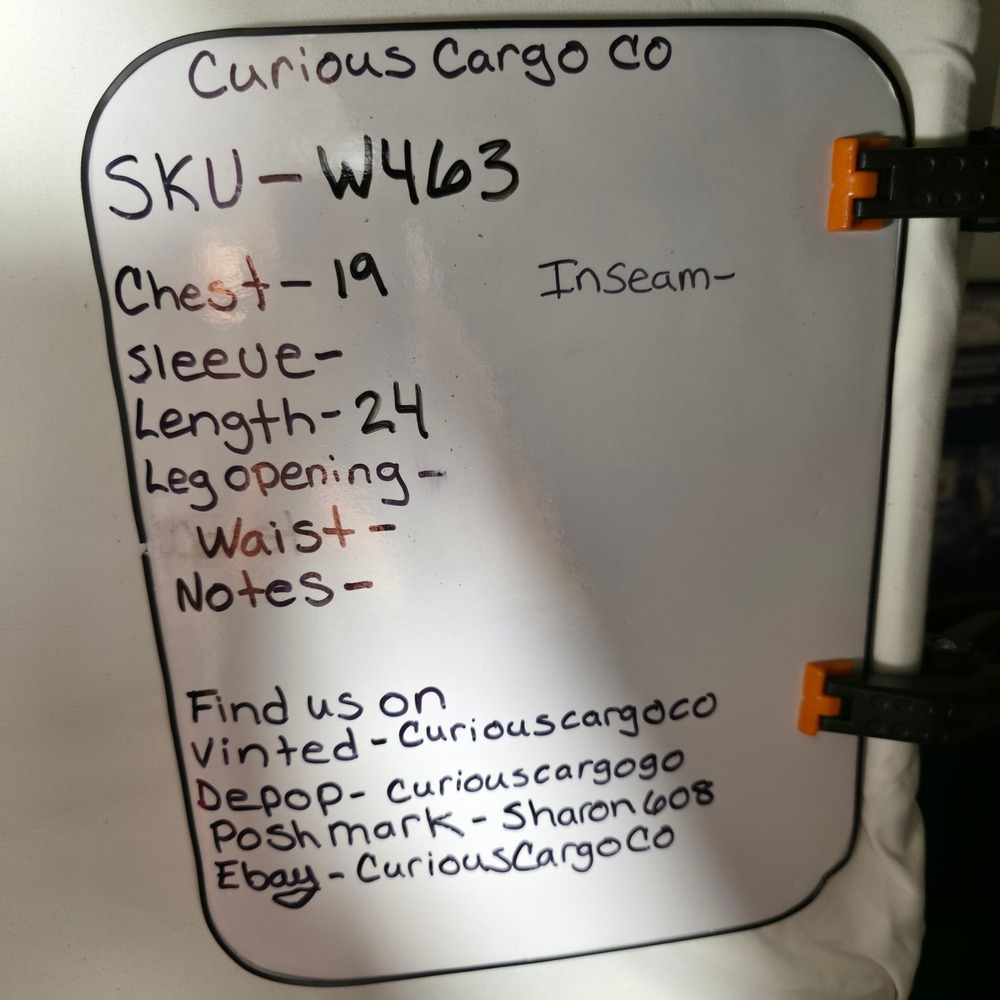 Curious Cargo CO
SKU - W463
Chest - 19
Inseam-
Sleeve-
Length- 24
Leg opening -
Waist -
Notes-
Find us on
Vinted - Curiouscargoco
Depop- Curiouscargogo
Poshmark - Sharon608
Ebay - CuriousCargoCo